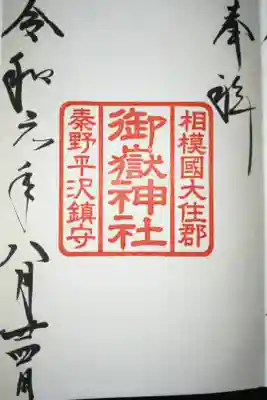 奉拝
相模國大住郡
御嶽神社
秦野平沢鎮守
令和元年八月廿四日